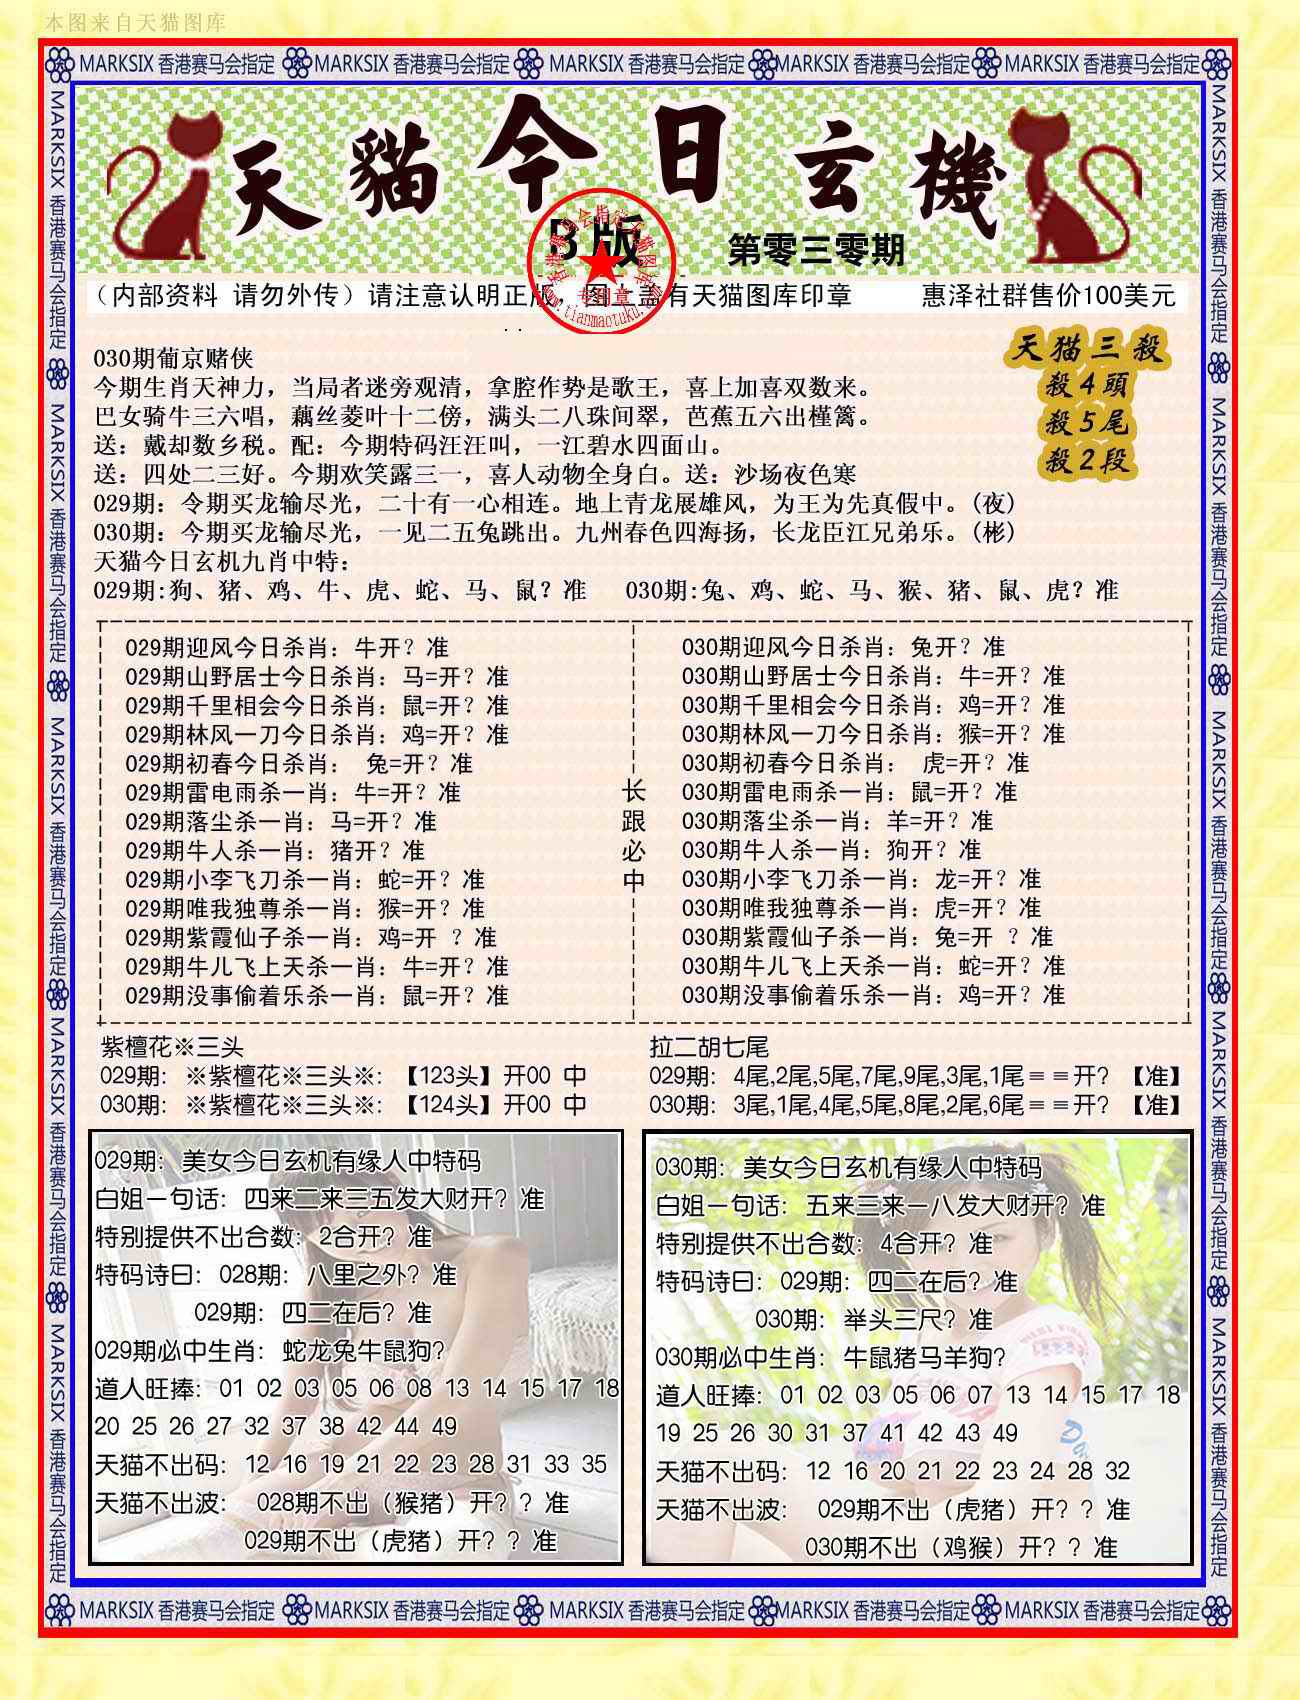 本图来自天猫图库
MARKSIX 香港赛马会指定 MARKSIX 香港赛马会指定 MARKSIX 香港赛马会指定 MARKSIX 香港赛马会指定 MARKSIX 香港赛马会指定
天貓今日玄機
B版
第零三零期
香港赛马会指定天猫图库
专用章
www.tianmaotuku.com
（内部资料 请勿外传）请注意认明正版，图上盖有天猫图库印章 惠泽社群售价100美元
天猫三殺
殺4頭
殺5尾
殺2段
030期葡京赌侠
今期生肖天神力，当局者迷旁观清，拿腔作势是歌王，喜上加喜双数来。
巴女骑牛三六唱，藕丝菱叶十二傍，满头二八珠间翠，芭蕉五六出槿篱。
送：戴却数乡税。配：今期特码汪汪叫，一江碧水四面山。
送：四处二三好。今期欢笑露三一，喜人动物全身白。送：沙场夜色寒
029期：令期买龙输尽光，二十有一心相连。地上青龙展雄风，为王为先真假中。(夜)
030期：今期买龙输尽光，一见二五兔跳出。九州春色四海扬，长龙臣江兄弟乐。(彬)
天猫今日玄机九肖中特：
029期:狗、猪、鸡、牛、虎、蛇、马、鼠？准 030期:兔、鸡、蛇、马、猴、猪、鼠、虎？准
029期迎风今日杀肖：牛开？准
029期山野居士今日杀肖：马=开？准
029期千里相会今日杀肖：鼠=开？准
029期林风一刀今日杀肖：鸡=开？准
029期初春今日杀肖： 兔=开？准
029期雷电雨杀一肖：牛=开？准
029期落尘杀一肖：马=开？准
029期牛人杀一肖：猪开？准
029期小李飞刀杀一肖：蛇=开？准
029期唯我独尊杀一肖：猴=开？准
029期紫霞仙子杀一肖：鸡=开 ？准
029期牛儿飞上天杀一肖：牛=开？准
029期没事偷着乐杀一肖：鼠=开？准
长跟必中
030期迎风今日杀肖：兔开？准
030期山野居士今日杀肖：牛=开？准
030期千里相会今日杀肖：鸡=开？准
030期林风一刀今日杀肖：猴=开？准
030期初春今日杀肖： 虎=开？准
030期雷电雨杀一肖：鼠=开？准
030期落尘杀一肖：羊=开？准
030期牛人杀一肖：狗开？准
030期小李飞刀杀一肖：龙=开？准
030期唯我独尊杀一肖：虎=开？准
030期紫霞仙子杀一肖：兔=开 ？准
030期牛儿飞上天杀一肖：蛇=开？准
030期没事偷着乐杀一肖：鸡=开？准
紫檀花※三头
029期：※紫檀花※三头※：【123头】开00 中
030期：※紫檀花※三头※：【124头】开00 中
拉二胡七尾
029期：4尾,2尾,5尾,7尾,9尾,3尾,1尾＝＝开？【准】
030期：3尾,1尾,4尾,5尾,8尾,2尾,6尾＝＝开？【准】
029期：美女今日玄机有缘人中特码
白姐一句话：四来二来三五发大财开？准
特别提供不出合数：2合开？准
特码诗曰：028期：八里之外？准
029期：四二在后？准
029期必中生肖：蛇龙兔牛鼠狗？
道人旺捧：01 02 03 05 06 08 13 14 15 17 18
20 25 26 27 32 37 38 42 44 49
天猫不出码：12 16 19 21 22 23 28 31 33 35
天猫不出波： 028期不出（猴猪）开？？准
029期不出（虎猪）开？？准
030期：美女今日玄机有缘人中特码
白姐一句话：五来三来一八发大财开？准
特别提供不出合数：4合开？准
特码诗曰：029期：四二在后？准
030期：举头三尺？准
030期必中生肖：牛鼠猪马羊狗？
道人旺捧：01 02 03 05 06 07 13 14 15 17 18
19 25 26 30 31 37 41 42 43 49
天猫不出码：12 16 20 21 22 23 24 28 32
天猫不出波： 029期不出（虎猪）开？？准
030期不出（鸡猴）开？？准
MARKSIX 香港赛马会指定 MARKSIX 香港赛马会指定 MARKSIX 香港赛马会指定 MARKSIX 香港赛马会指定 MARKSIX 香港赛马会指定
MARKSIX 香港赛马会指定 MARKSIX 香港赛马会指定 MARKSIX 香港赛马会指定 MARKSIX 香港赛马会指定 MARKSIX 香港赛马会指定
MARKSIX 香港赛马会指定 MARKSIX 香港赛马会指定 MARKSIX 香港赛马会指定 MARKSIX 香港赛马会指定 MARKSIX 香港赛马会指定